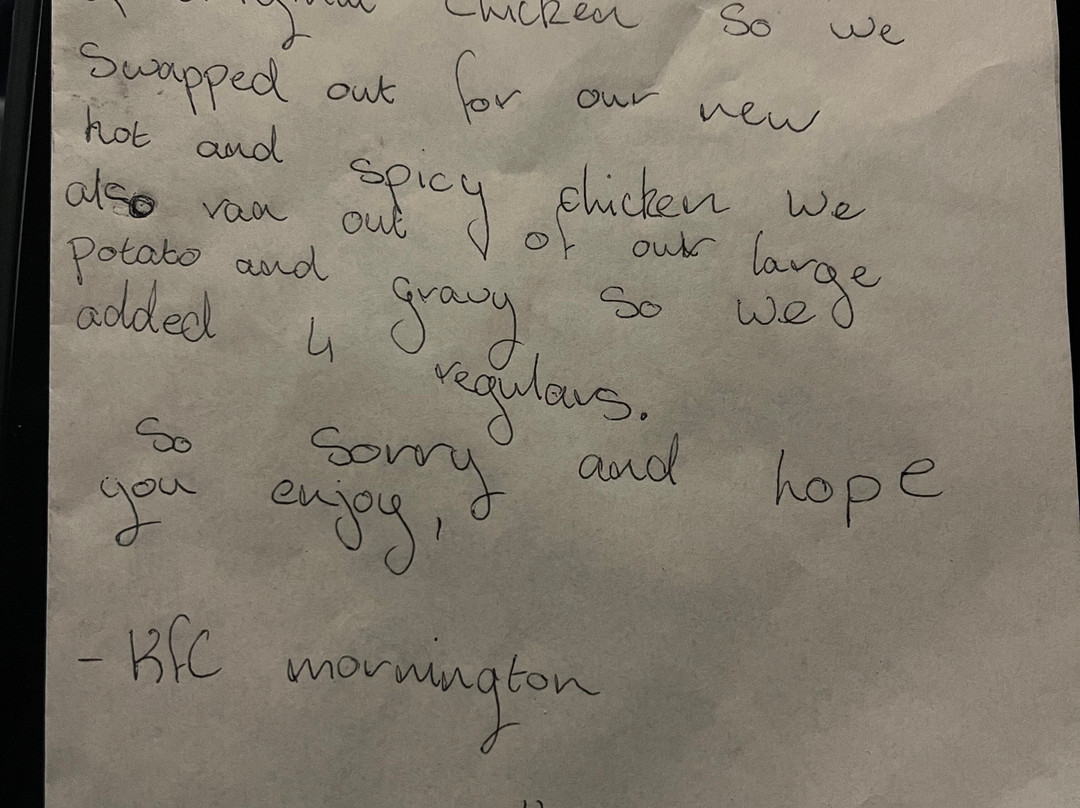 of original chicken So we
Swapped out for our new
hot and spicy chicken we
also ran out of our large
potato and gravy so we
added 4 regulars.
So sorry and hope
you enjoy,
- KFC mornington